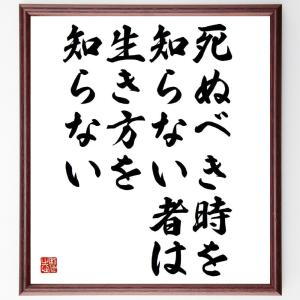 死ぬべき時を
知らない者は
生き方を
知らない